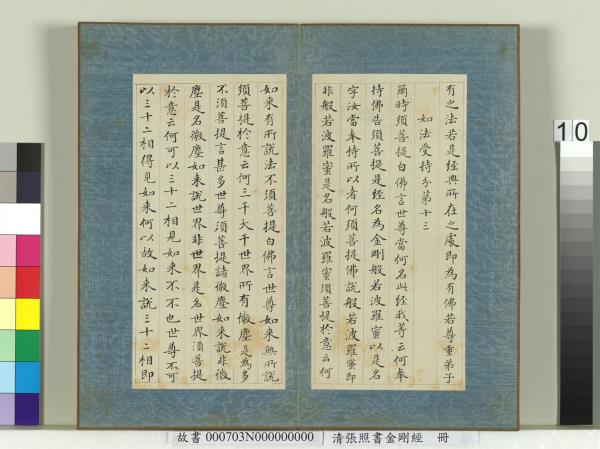 有之法若是經典所在之處即為有佛若尊重弟子
如法受持分第十三
爾時須菩提白佛言世尊當何名此經我等云何奉
持佛告須菩提是經名為金剛般若波羅蜜以是名
字汝當奉持所以者何須菩提佛說般若波羅蜜即
非般若波羅蜜是名般若波羅蜜須菩提於意云何
如来有所說法不須菩提白佛言世尊如来無所說
須菩提於意云何三千大千世界所有微塵是為多
不須菩提言甚多世尊須菩提諸微塵如来說非微
塵是名微塵如来說世界非世界是名世界須菩提
於意云何可以三十二相見如来不不也世尊不可
以三十二相得見如来何以故如来說三十二相即
10
故書 000703N000000000 清張照書金剛經 冊